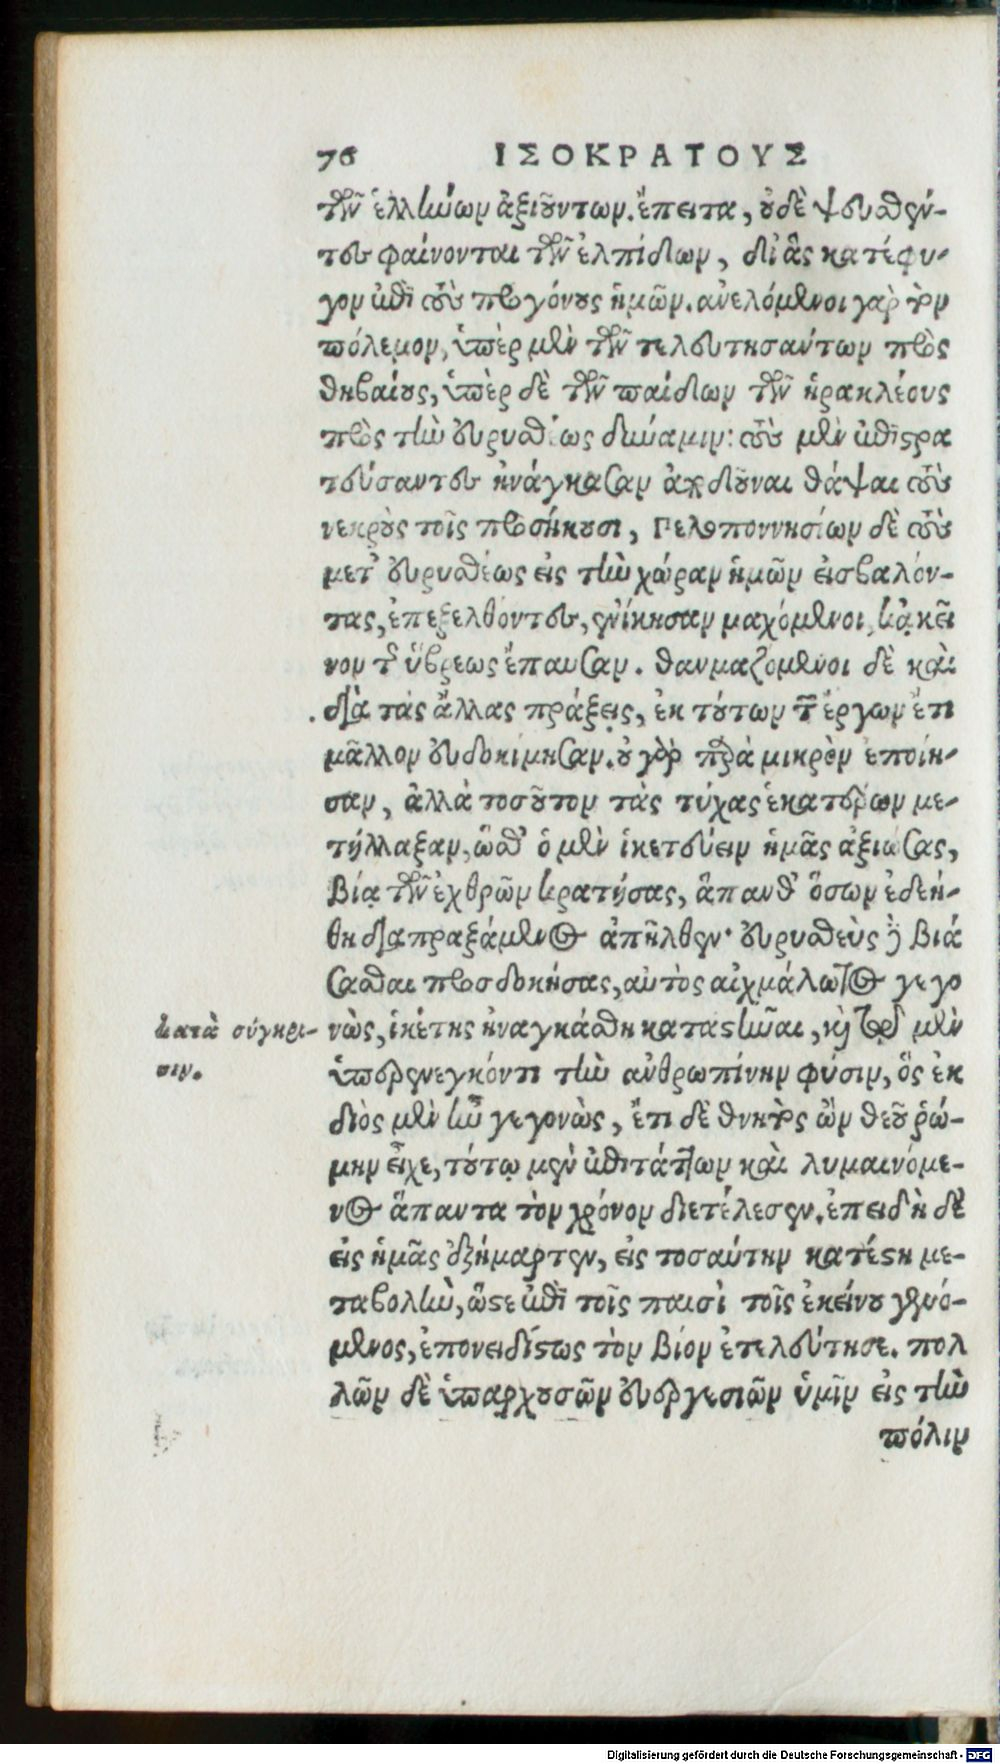 76 ΙΣΟΚΡΑΤΟΥΣ
τῶν ἑλλήνων ἀξιοῦντων. ἔπειτα, οὐδὲ ψευσθέν-
τες φαίνονται τῶν ἐλπίδων, δι' ἃς κατέφυ-
γον ἐπὶ τοὺς προγόνους ἡμῶν. ἀνελόμενοι γὰρ τὸν
πόλεμον, ὑπὲρ μὲν τῶν τελευτησάντων πρὸς
θηβαίους, ὑπὲρ δὲ τῶν παίδων τῶν ἡρακλέους
πρὸς τὴν εὐρυσθέως δύναμιν: τοὺς μὲν ἐπιστρα
τεύσαντες ἠνάγκασαν ἀποδοῦναι θάψαι τοὺς
νεκροὺς τοῖς προσήκουσι, Πελοποννησίων δὲ τοὺς
μετ' εὐρυσθέως εἰς τὴν χώραν ἡμῶν εἰσβαλόν-
τας, ἐπεξελθόντες, ἐνίκησαν μαχόμενοι, κἀκεῖ
νον τῆς ὕβρεως ἔπαυσαν. θαυμαζόμενοι δὲ καὶ
διὰ τὰς ἄλλας πράξεις, ἐκ τούτων τῶν ἔργων ἔτι
μᾶλλον εὐδοκίμησαν. οὐ γὰρ παρὰ μικρὸν ἐποίη-
σαν, ἀλλὰ τοσοῦτον τὰς τύχας ἑκατέρων με-
τήλλαξαν, ὥσθ' ὁ μὲν ἱκετεύειν ἡμᾶς ἀξιώσας,
βίᾳ τῶν ἐχθρῶν κρατήσας, ἅπανθ' ὅσων ἐδεή-
θη διαπραξάμενος ἀπῆλθεν· εὐρυσθεὺς δὲ βιά
σασθαι προσδοκήσας, αὐτὸς αἰχμάλωτος γεγο
νὼς, ἱκέτης ἠναγκάσθη καταστῆναι, καὶ τῷ μὲν
κατὰ σύγκρι-
σιν.
ὑπερενεγκόντι τὴν ἀνθρωπίνην φύσιν, ὃς ἐκ
διὸς μὲν ἦν γεγονὼς, ἔτι δὲ θνητὸς ὢν θεοῦ ῥώ-
μην εἶχε, τούτῳ μὲν ἐπιτάττων καὶ λυμαινόμε-
νος ἅπαντα τὸν χρόνον διετέλεσεν. ἐπειδὴ δὲ
εἰς ἡμᾶς ἐξήμαρτεν, εἰς τοσαύτην κατέστη με-
ταβολὴν, ὥστε ἐπὶ τοῖς παισὶ τοῖς ἐκείνου γενό-
μενος, ἐπονειδίστως τὸν βίον ἐτελεύτησε. πολ
λῶν δὲ ὑπαρχουσῶν εὐεργεσιῶν ὑμῖν εἰς τὴν
πόλιν
Digitalisierung gefördert durch die Deutsche Forschungsgemeinschaft - DFG